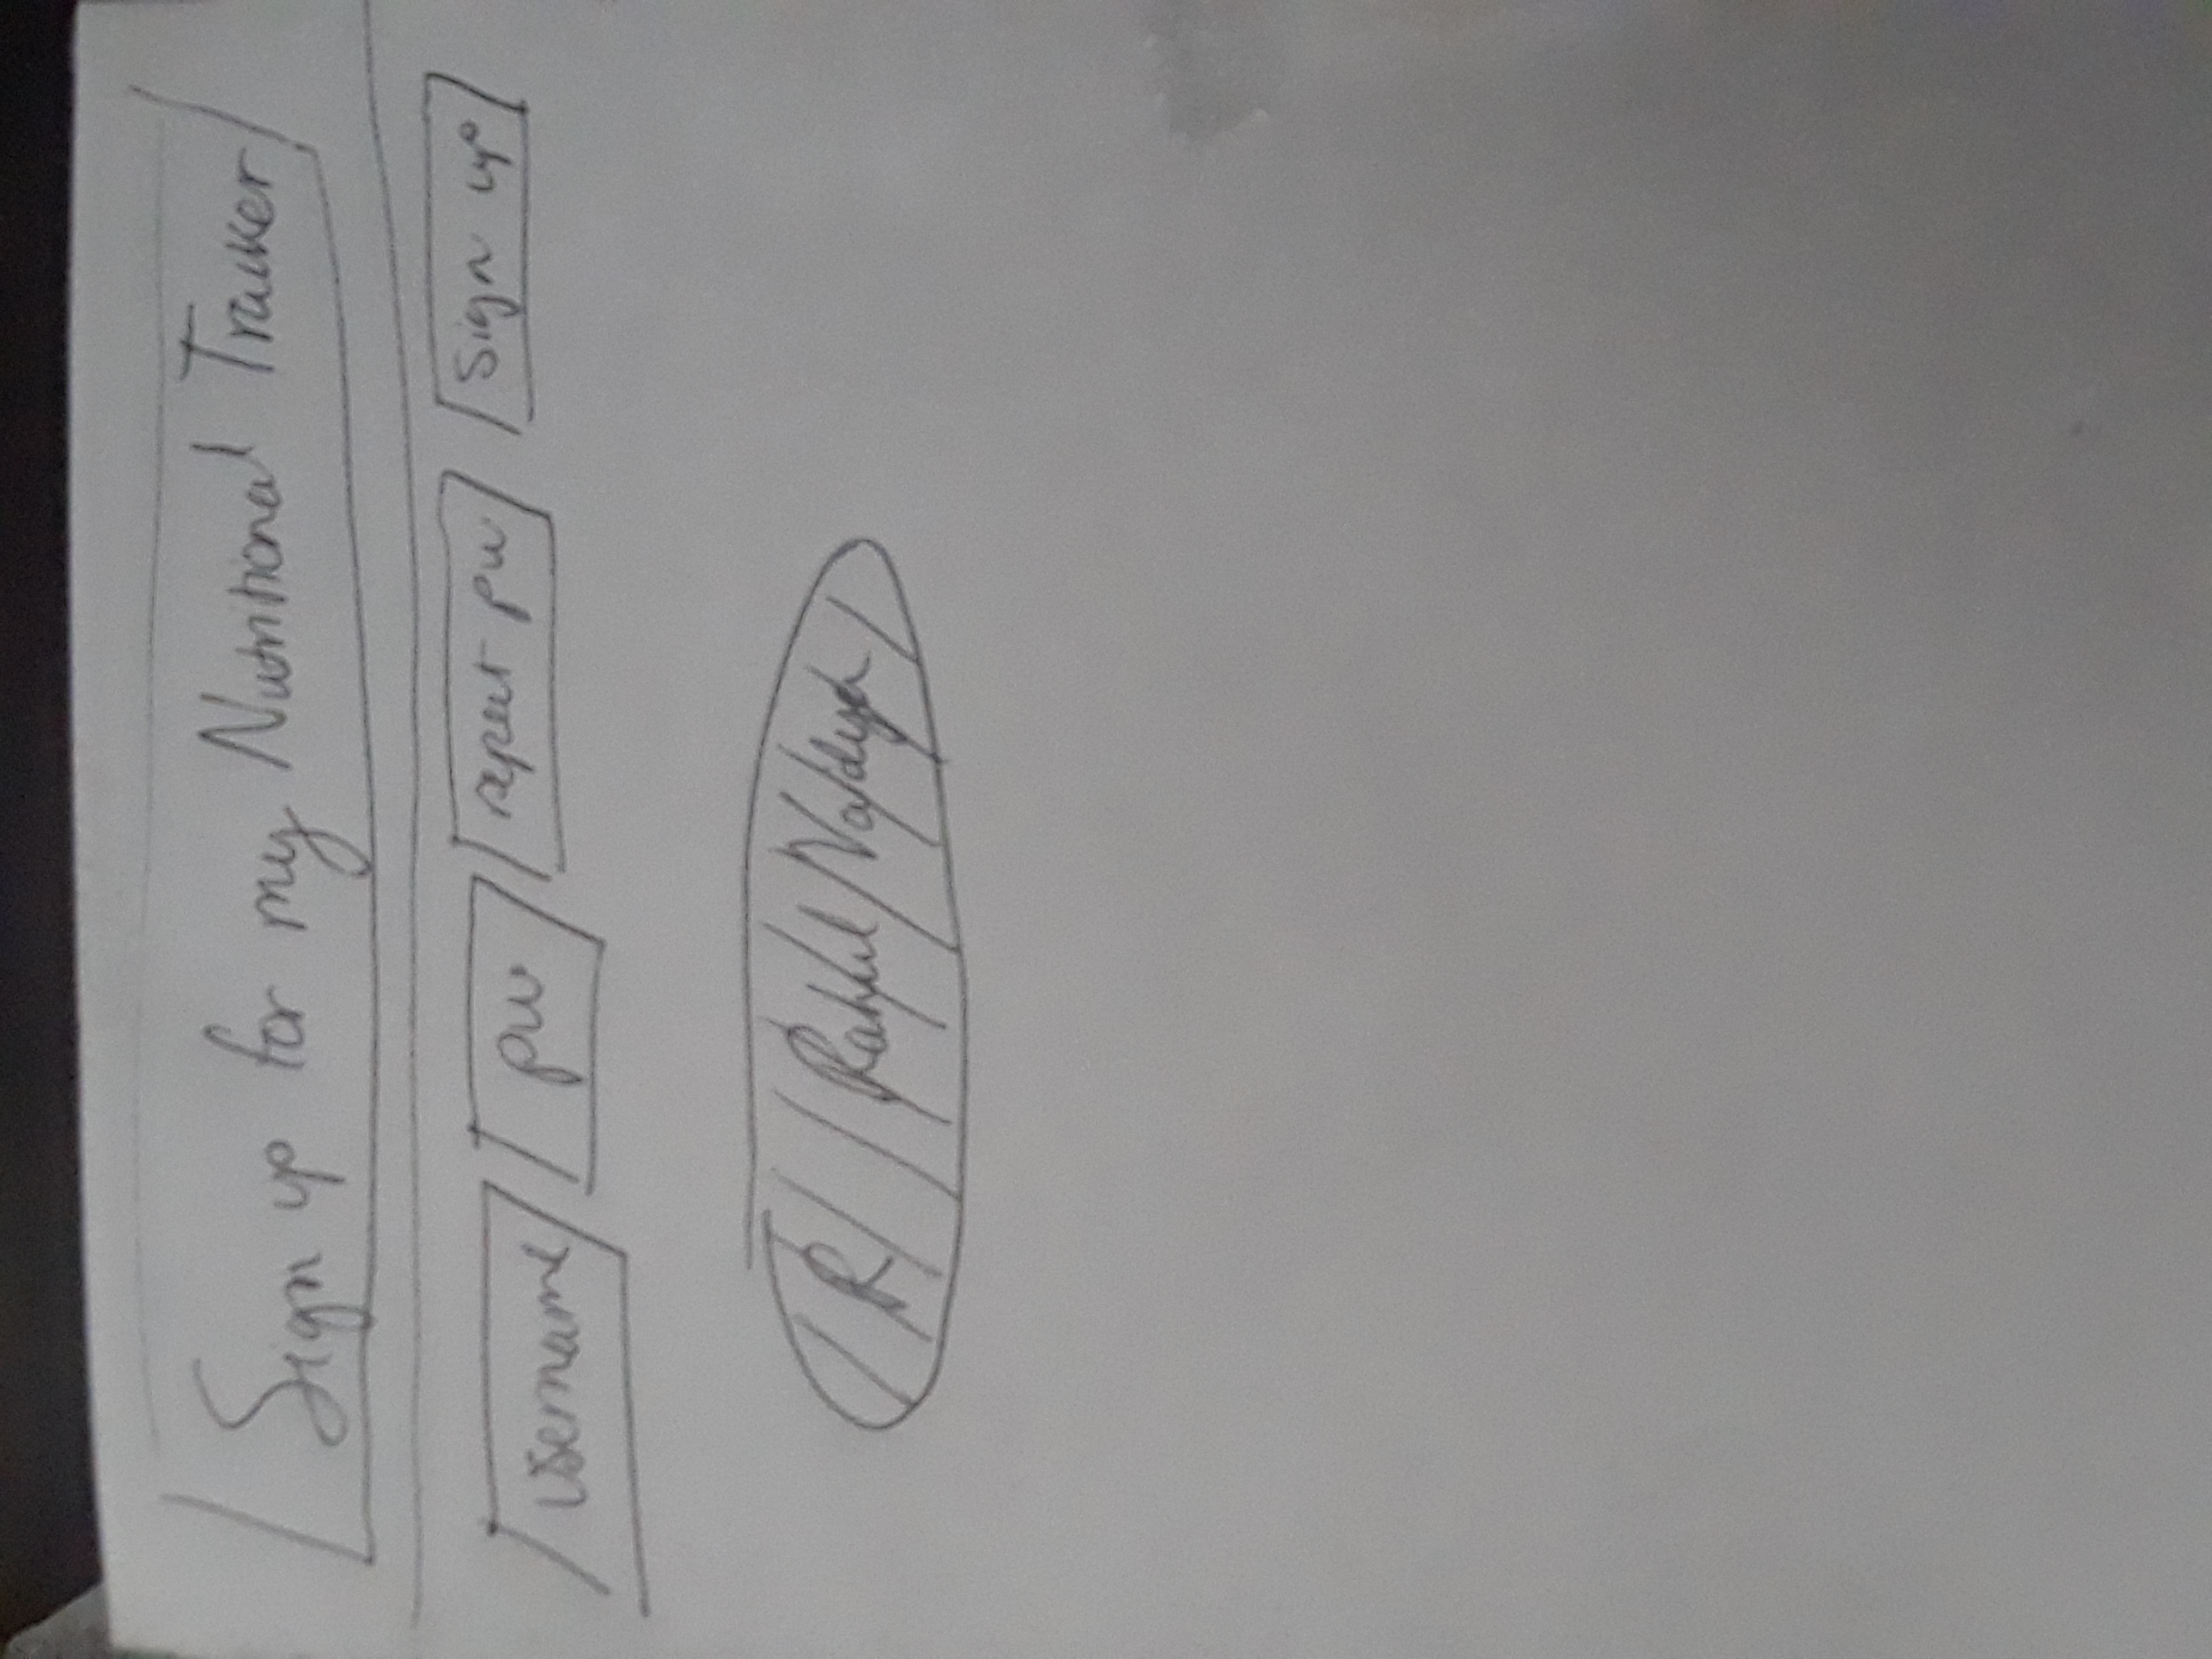 Sign up for my Nutritional Tracker
Username pw repeat pw Sign up
R Rahul Vaidya